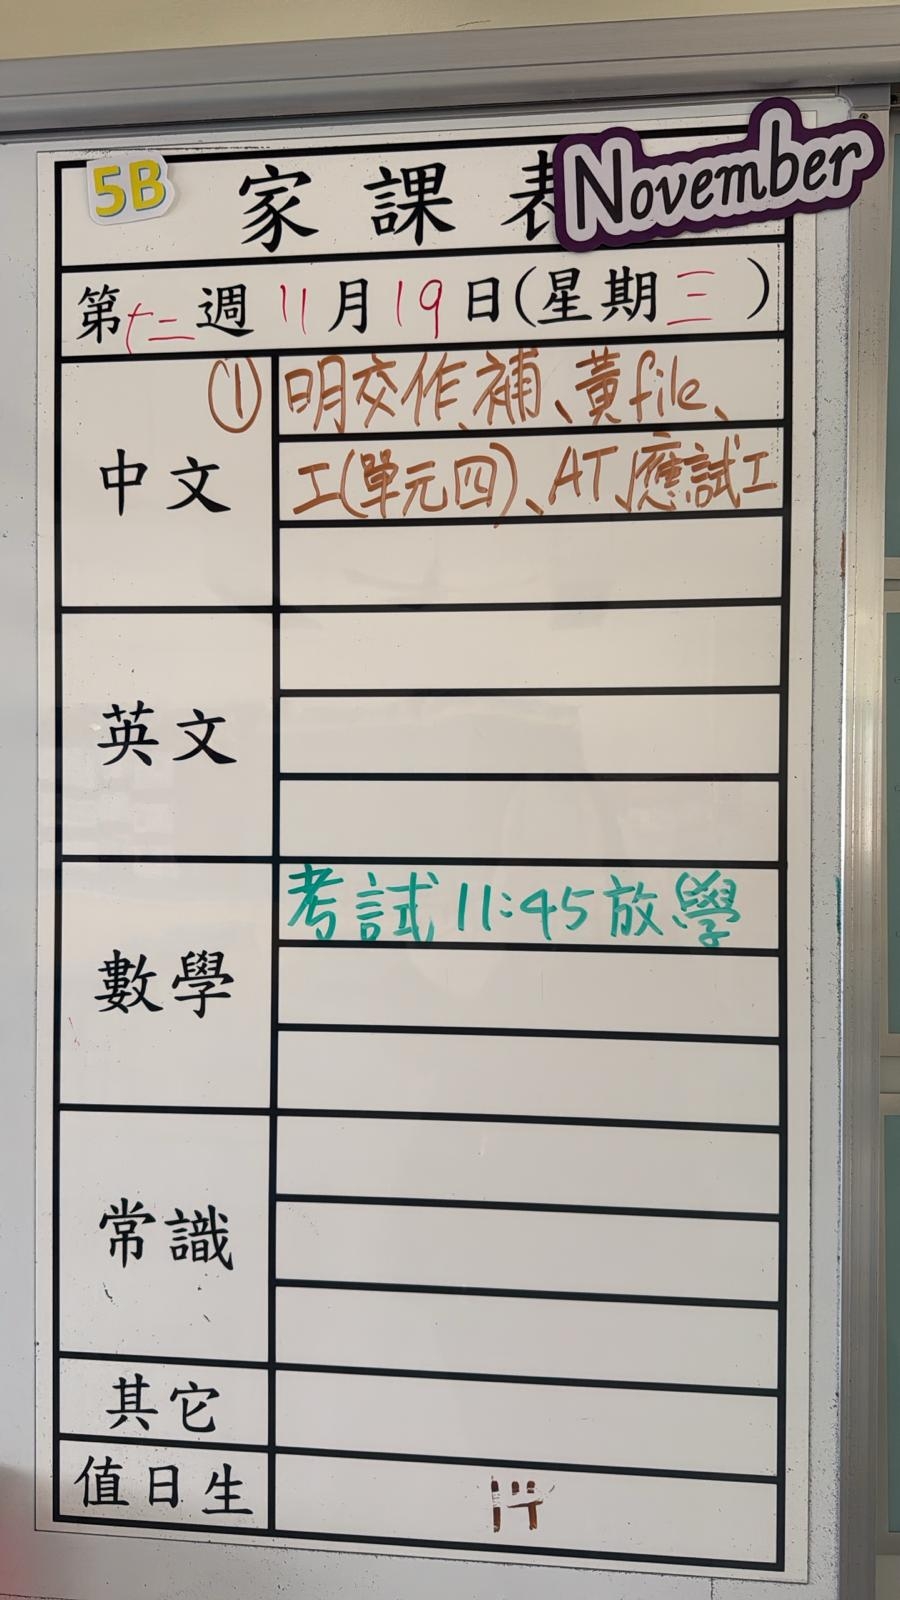 5B
家課表
November
第十二週 11月19日(星期三)
中文
① 明交作、補、黃file、
工(單元四)、AT、應試工
英文
數學
考試11:45放學
常識
其它
值日生